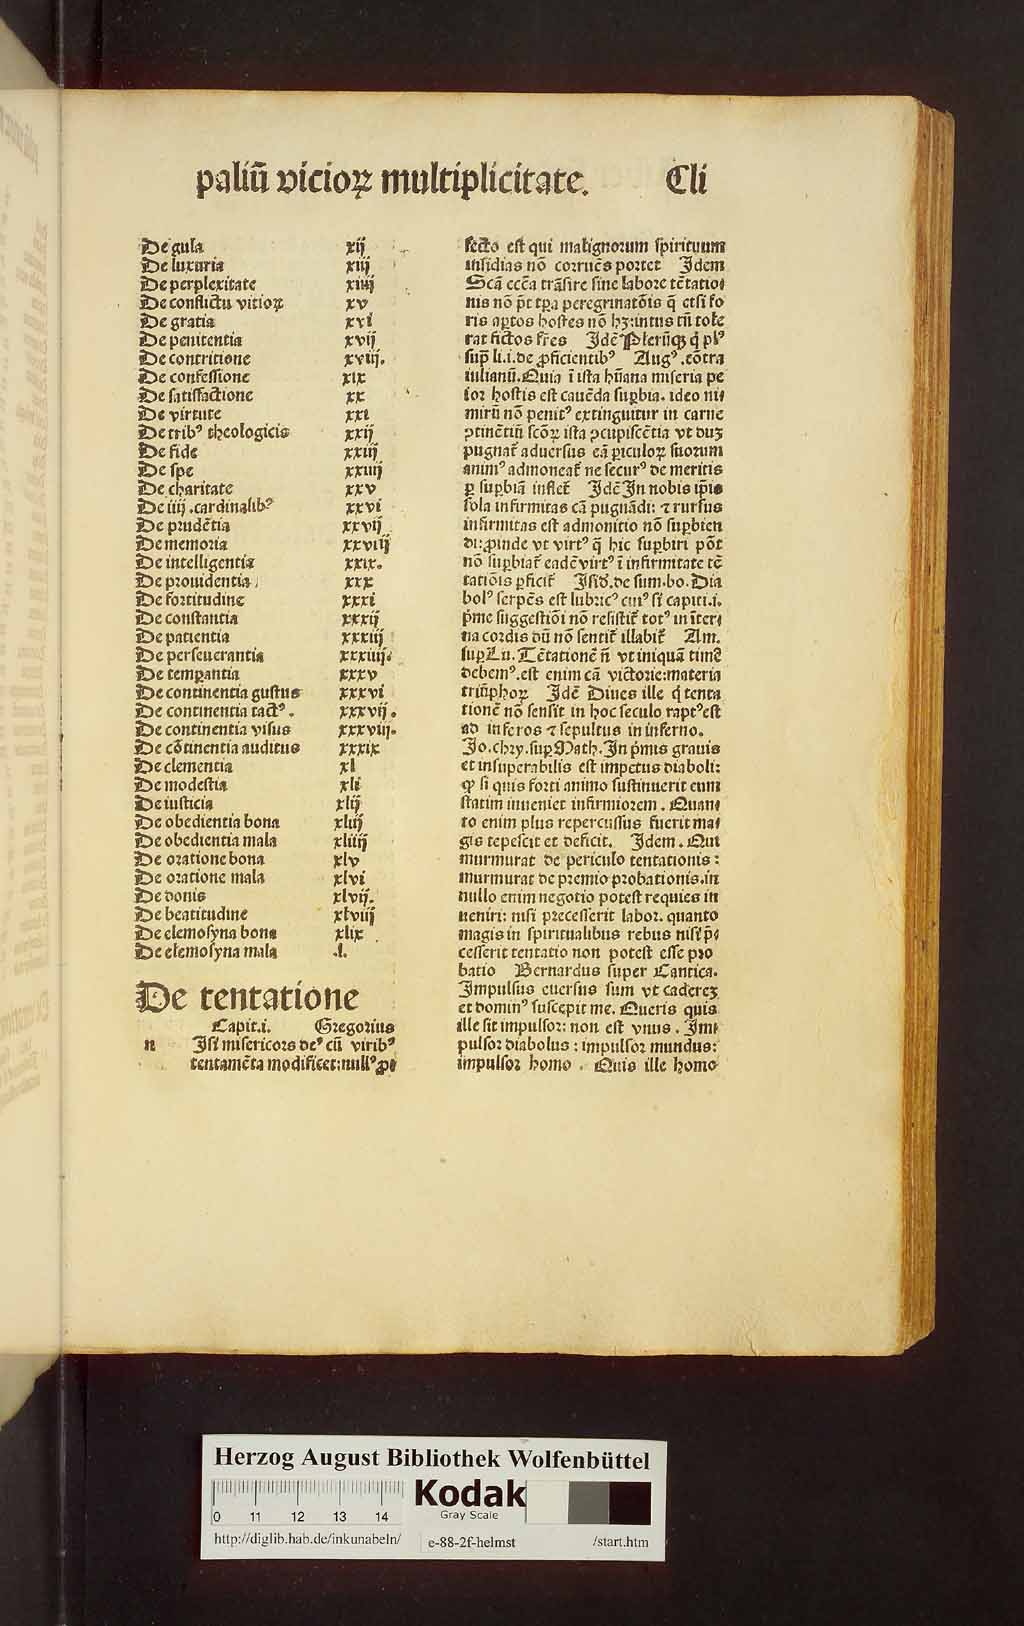 paliū vicioꝝ multiplicitate. Cli
De gula xij
De luxuria xiij
De perplexitate xiiij
De conflictu vitioꝝ xv
De gratia xvi
De penitentia xvij
De contritione xviij.
De confessione xix
De satisfactione xx
De virtute xxi
De tribꝰ theologicis xxij
De fide xxiij
De spe xxiiij
De charitate xxv
De iiij .cardinalibꝰ xxvi
De prudētia xxvij
De memoria xxviij
De intelligentia xxix.
De prouidentia xxx
De fortitudine xxxi
De constantia xxxij
De patientia xxxiij
De perseuerantia xxxiiij.
De temꝑantia xxxv
De continentia gustus xxxvi
De continentia tactꝰ. xxxvij.
De continentia visus xxxviij.
De cōtinentia auditus xxxix
De clementia xl
De modestia xli
De iusticia xlij
De obedientia bona xliij
De obedientia mala xliiij
De oratione bona xlv
De oratione mala xlvi
De donis xlvij.
De beatitudine xlviij
De elemosyna bona xlix
De elemosyna mala .l.
De tentatione
Capit.i. Gregorius
n Isi misericors deꝰ cū viribꝰ
tentamēta modificet: nullꝰ ꝓ⸗
fecto est qui malignorum spirituum
insidias nō corruēs portet Idem
Scā eccīa trāsire sine labore tētatio⸗
nis nō pt̄ tꝑa peregrinatōis q̄ etsi fo
ris aꝑtos hostes nō hꝫ: intus tn̄ tole
rat fictos fr̄es Idē Plerūqꝫ q̄ plꝰ
sup̄ li.i. de ꝓficientibꝰ Augꝰ .cōtra
iulianū. Quia ī ista hūana miseria pe
ior hostis est cauēda suꝑbia. ideo ni⸗
mirū nō penitꝰ extinguitur in carne
ꝯtinētiū scōꝝ ista ꝯcupiscētia vt duꝫ
pugnat̄ aduersus eā ꝑiculoꝝ suorum
animꝰ admoneat̄ ne securꝰ de meritis
ꝑ suꝑbiā inflet̄ Idē In nobis ip̄is
sola infirmitas cā pugnādi: ⁊ rursus
infirmitas est admonitio nō suꝑbien
di: ꝓinde vt virtꝰ q̄ hic suꝑbiri pōt
nō suꝑbiat̄ eadē virtꝰ ī infirmitate tē
tatiōis ꝑficit̄ Isid̄. de sum. bo. Dia
bolꝰ serpēs est lubricꝰ cuiꝰ si capiti .i.
p̄me suggestiōi nō resistit̄ totꝰ in īter⸗
na cordis dū nō sentit̄ illabit̄ Am.
suꝑ Lu. Tētationē n̄ vt iniquā timē
debemꝰ. est enim eā victorie: materia
triūphoꝝ Idē Diues ille q̄ tenta
tionē nō sensit in hoc seculo raptꝰ est
ad inferos ⁊ sepultus in inferno.
Jo. chry. suꝑ Math. In p̄mis grauis
et insuperabilis est impetus diaboli:
ꝙ si quis forti animo sustinuerit eum
statim inueniet infirmiorem. Quan⸗
to enim plus repercussus fuerit ma⸗
gis tepescit et deficit. Idem. Qui
murmurat de periculo tentationis:
murmurat de premio probationis. in
nullo enim negotio potest requies in
ueniri: nisi precesserit labor. quanto
magis in spiritualibus rebus nisi p̄⸗
cesserit tentatio non potest esse pro
batio Bernardus super Cantica.
Impulsus euersus sum vt cadereꝫ
et dominꝰ suscepit me. Queris quis
ille sit impulsor: non est vnus. Im⸗
pulsor diabolus: impulsor mundus:
impulsor homo. Quis ille homo
Herzog August Bibliothek Wolfenbüttel
0 11 12 13 14
Kodak
Gray Scale
http://diglib.hab.de/inkunabeln/ e-88-2f-helmst /start.htm